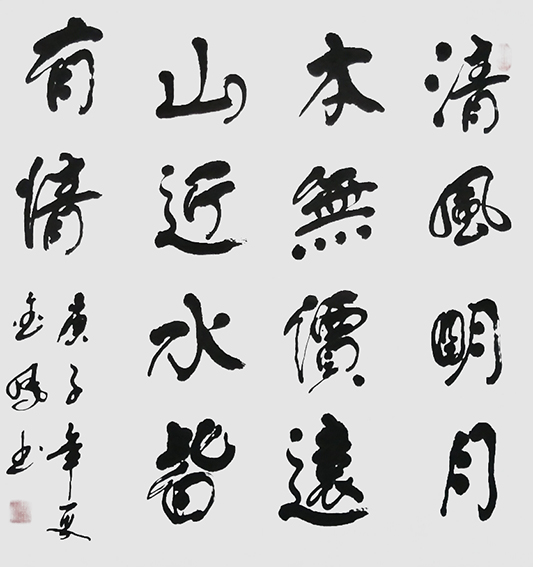 清風明月
本無價遠
山近水皆
有情
庚子年夏
书